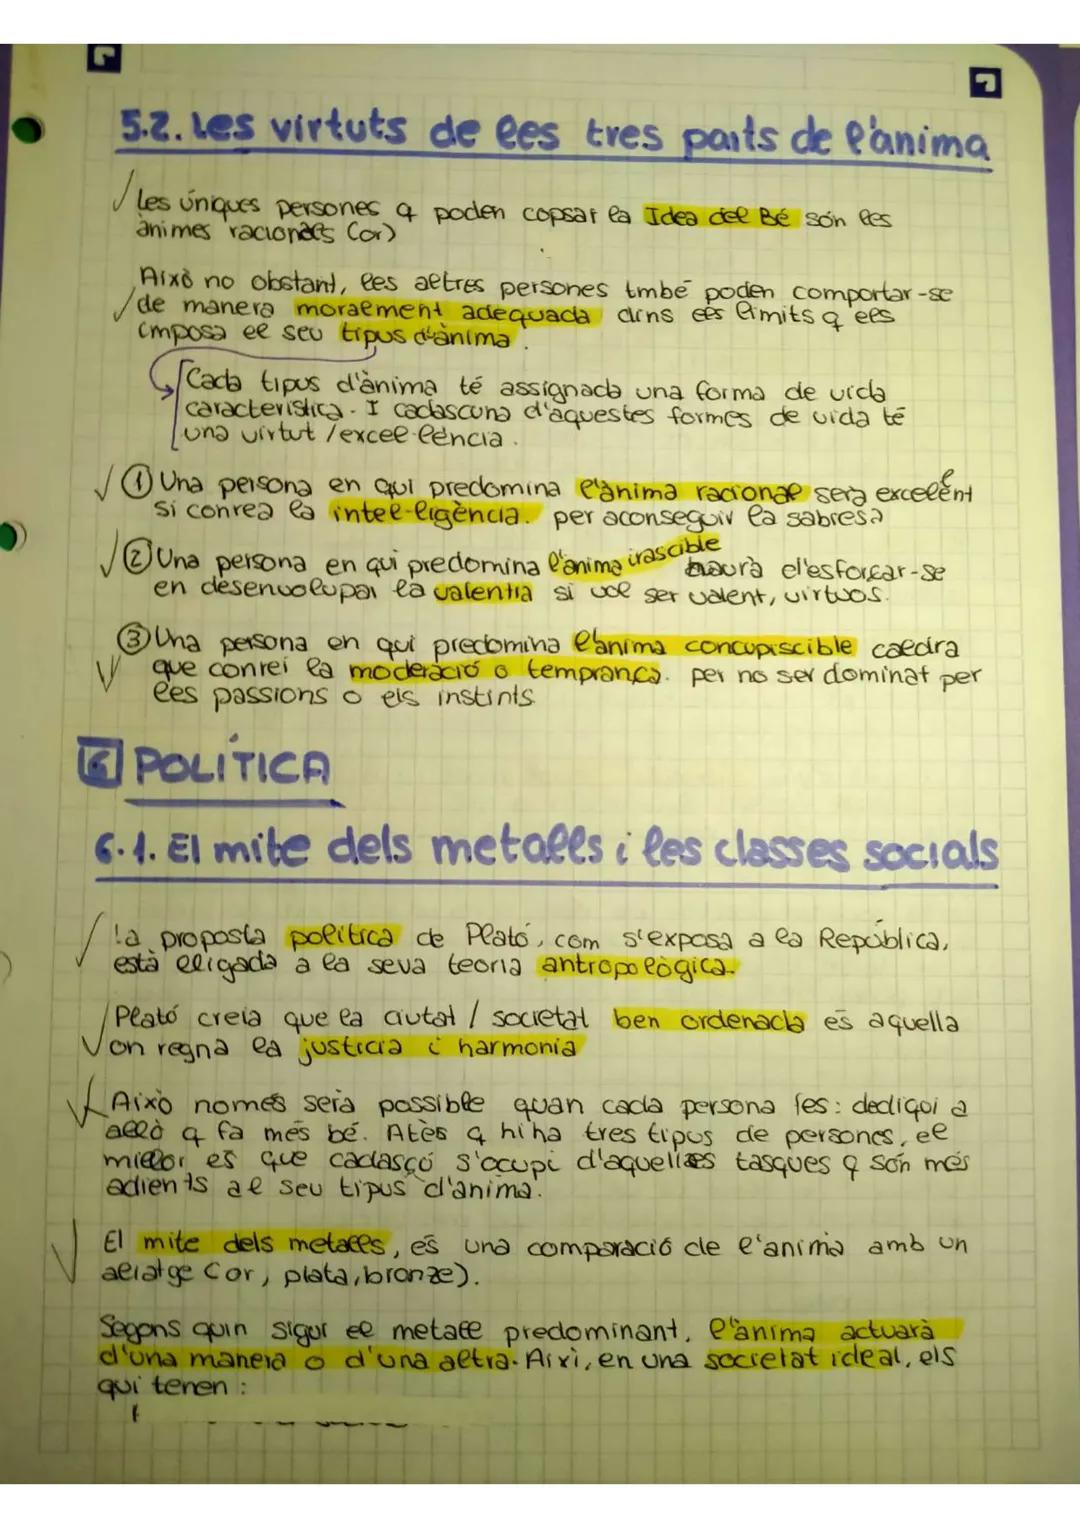 5.2. Les virtuts de les tres parts de l'ànima
Les úniques persones q poden copsar la Idea del Bé són les
ànimes racionals (or)
Això no obstant, les altres persones tmbé poden comportar-se
de manera moralment adequada dins els límits q els
imposa el seu tipus d'ànima.
Cada tipus d'ànima té assignada una forma de vida
característica. I cadascuna d'aquestes formes de vida té
una virtut / excel·lència.
① Una persona en qui predomina l'ànima racional serà excel·lent
si conrea la intel·ligència. per aconseguir la sabresa
② Una persona en qui predomina l'ànima irascible haurà d'esforçar-se
en desenvolupar la valentia si vol ser valent, virtuós.
③ Una persona en qui predomina l'ànima concupiscible caldrà
que conrei la moderació o temprança. per no ser dominat per
les passions o els instints
6 POLÍTICA
6.1. El mite dels metalls i les classes socials
La proposta política de Plató, com s'exposa a la República,
està lligada a la seva teoria antropològica.
Plató creia que la ciutat / societat ben ordenada és aquella
on regna la justícia i harmonia
Això només serà possible quan cada persona fes: dediqui a
allò q fa més bé. Atès q hi ha tres tipus de persones, el
millor és que cadascú s'ocupi d'aquelles tasques q són més
adients al seu tipus d'ànima.
El mite dels metalls, és una comparació de l'ànima amb un
aliatge (or, plata, bronze).
Segons quin sigui el metall predominant, l'ànima actuarà
d'una manera o d'una altra. Així, en una societat ideal, els
qui tenen :